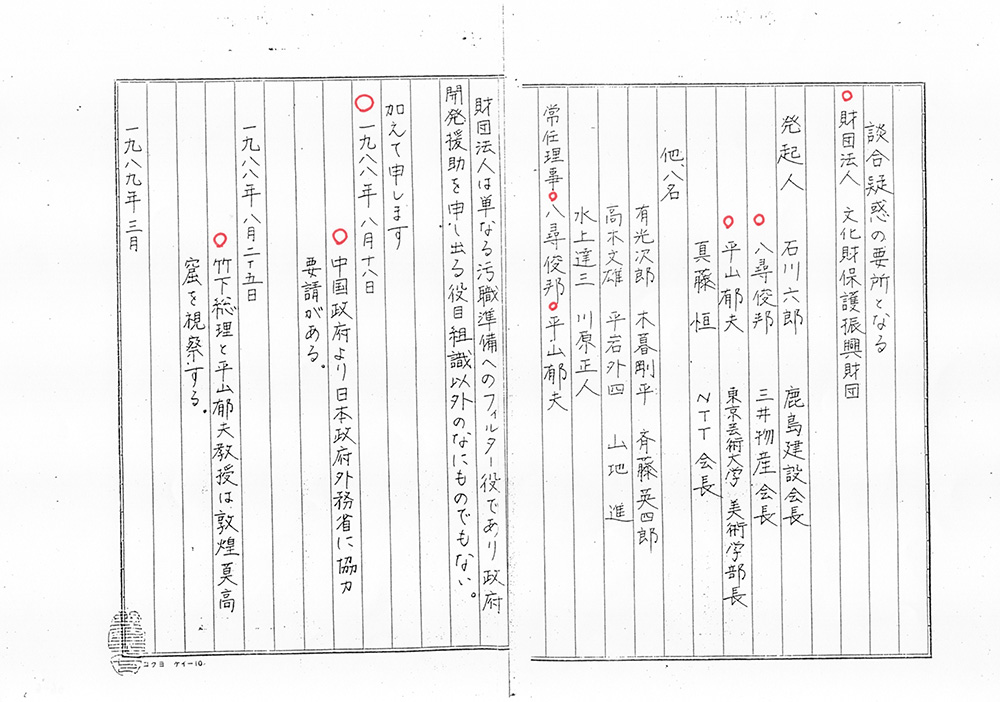 談合疑惑の要所となる
財団法人 文化財保護振興財団
発起人 石川六郎 鹿島建設会長
八尋俊邦 三井物産会長
平山郁夫 東京芸術大学 美術学部長
真藤 恒 NTT会長
他、八名
有光次郎 木暮剛平 斉藤英四郎
高木文雄 平岩外四 山地 進
水上達三 川原正人
常任理事 八尋俊邦 平山郁夫
財団法人は単なる汚職準備へのフィルター役であり政府
開発援助を申し出る役目組識以外のなにものでもない。
加えて申します
一九八八年 八月十八日
中国政府より日本政府外務省に協力
要請がある.
一九八八年 八月二十五日
竹下総理と平山郁夫教授は敦煌莫高
窟を視察する.
一九八九年三月
コクヨ ケイ-10